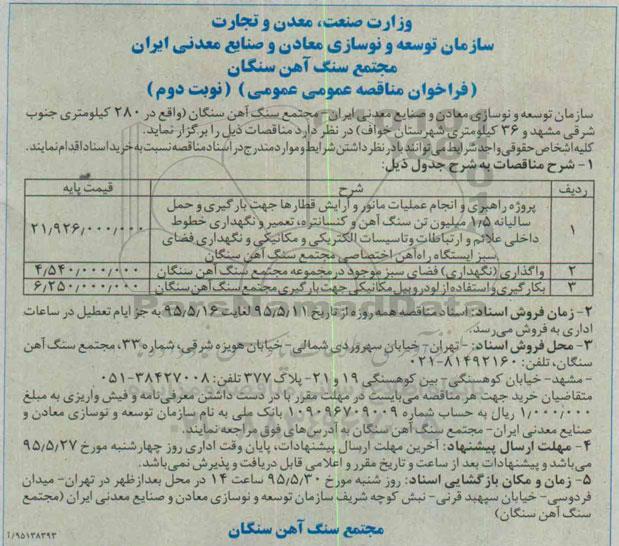 وزارت صنعت، معدن و تجارت
سازمان توسعه و نوسازی معادن و صنایع معدنی ایران
مجتمع سنگ آهن سنگان
(فراخوان مناقصه عمومی عمومی) (نوبت دوم)
سازمان توسعه و نوسازی معادن و صنایع معدنی ایران- مجتمع سنگ آهن سنگان (واقع در ۲۸۰ کیلومتری جنوب
شرقی مشهد و ۳۶ کیلومتری شهرستان خواف) در نظر دارد مناقصات ذیل را برگزار نماید.
کلیه اشخاص حقوقی واجد شرایط می‌توانند با در نظر داشتن شرایط و موارد مندرج در اسناد مناقصه نسبت به خرید اسناد اقدام نمایند.
۱- شرح مناقصات به شرح جدول ذیل:
ردیف شرح قیمت پایه
۱ پروژه راهبری و انجام عملیات مانور و آرایش قطارها جهت بارگیری و حمل
سالیانه ۱/۵ میلیون تن سنگ آهن و کنسانتره، تعمیر و نگهداری خطوط
داخلی علائم و ارتباطات و تاسیسات الکتریکی و مکانیکی و نگهداری فضای
سبز ایستگاه راه‌آهن اختصاصی مجتمع سنگ آهن سنگان ۲۱/۹۲۶/۰۰۰/۰۰۰
۲ واگذاری (نگهداری) فضای سبز موجود در مجموعه مجتمع سنگ آهن سنگان ۴/۵۴۰/۰۰۰/۰۰۰
۳ بکارگیری و استفاده از لودر و بیل مکانیکی جهت بارگیری مجتمع سنگ آهن سنگان ۶/۲۵۰/۰۰۰/۰۰۰
۲- زمان فروش اسناد: اسناد مناقصه همه روزه از تاریخ ۹۵/۵/۱۱ لغایت ۹۵/۵/۱۶ به جز ایام تعطیل در ساعات
اداری به فروش می‌رسد.
۳- محل فروش اسناد: -تهران- خیابان سهروردی شمالی- خیابان هویزه شرقی، شماره ۳۳، مجتمع سنگ آهن
سنگان، تلفن: ۸۱۴۹۲۱۶۰-۰۲۱
- مشهد- خیابان کوهسنگی- بین کوهسنگی ۱۹ و ۲۱- پلاک ۳۷۷ تلفن: ۳۸۴۲۷۰۰۸-۰۵۱
متقاضیان خرید جهت هر مناقصه می‌بایست در مهلت مقرر با در دست داشتن معرفی‌نامه و فیش واریزی به مبلغ
۱/۰۰۰/۰۰۰ ریال به حساب شماره ۰۱۰۹۰۹۶۷۰۹۰۰۹ بانک ملی به نام سازمان توسعه و نوسازی معادن و
صنایع معدنی ایران- مجتمع سنگ آهن سنگان به آدرس‌های فوق مراجعه نمایند.
۴- مهلت ارسال پیشنهاد: آخرین مهلت ارسال پیشنهادات، پایان وقت اداری روز چهارشنبه مورخ ۹۵/۵/۲۷
می‌باشد و پیشنهادات بعد از ساعت و تاریخ مقرر و اعلامی قابل دریافت و پذیرش نمی‌باشد.
۵- زمان و مکان بازگشایی اسناد: روز شنبه مورخ ۹۵/۵/۳۰ ساعت ۱۴ در محل بعدازظهر در تهران- میدان
فردوسی- خیابان سپهبد قرنی- نبش کوچه شریف سازمان توسعه و نوسازی معادن و صنایع معدنی ایران (مجتمع
سنگ آهن سنگان)
مجتمع سنگ آهن سنگان
۹۵۱۳۸۳۹۳/آ
ParsNamadData